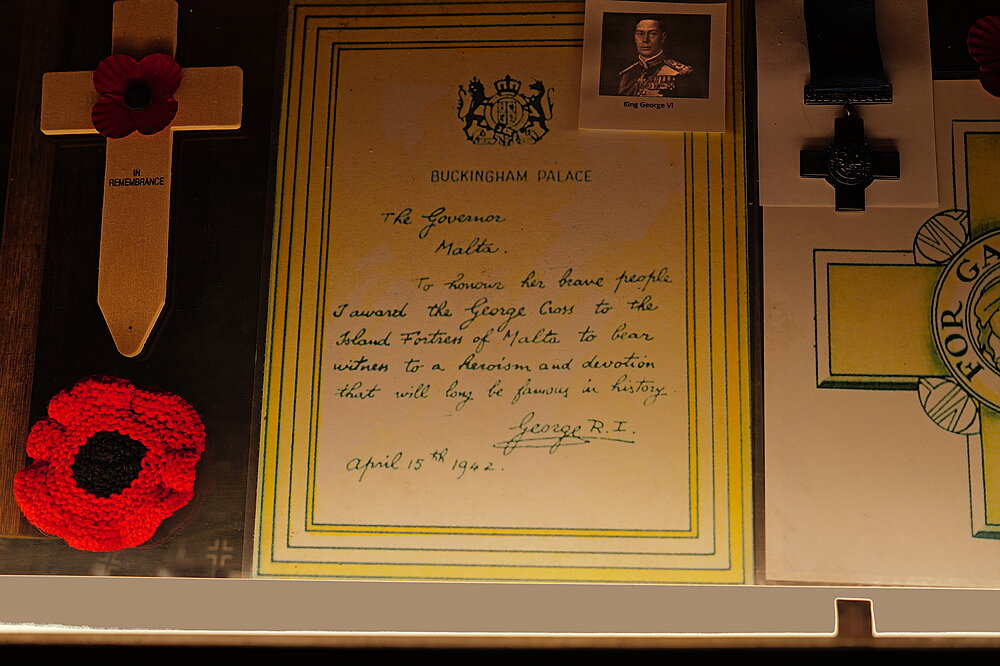 IN
REMEMBRANCE
King George VI
BUCKINGHAM PALACE
The Governor
Malta.
To honour her brave people
I award the George Cross to the
Island Fortress of Malta to bear
witness to a heroism and devotion
that will long be famous in history.
George R.I.
April 15th 1942.
FOR GA